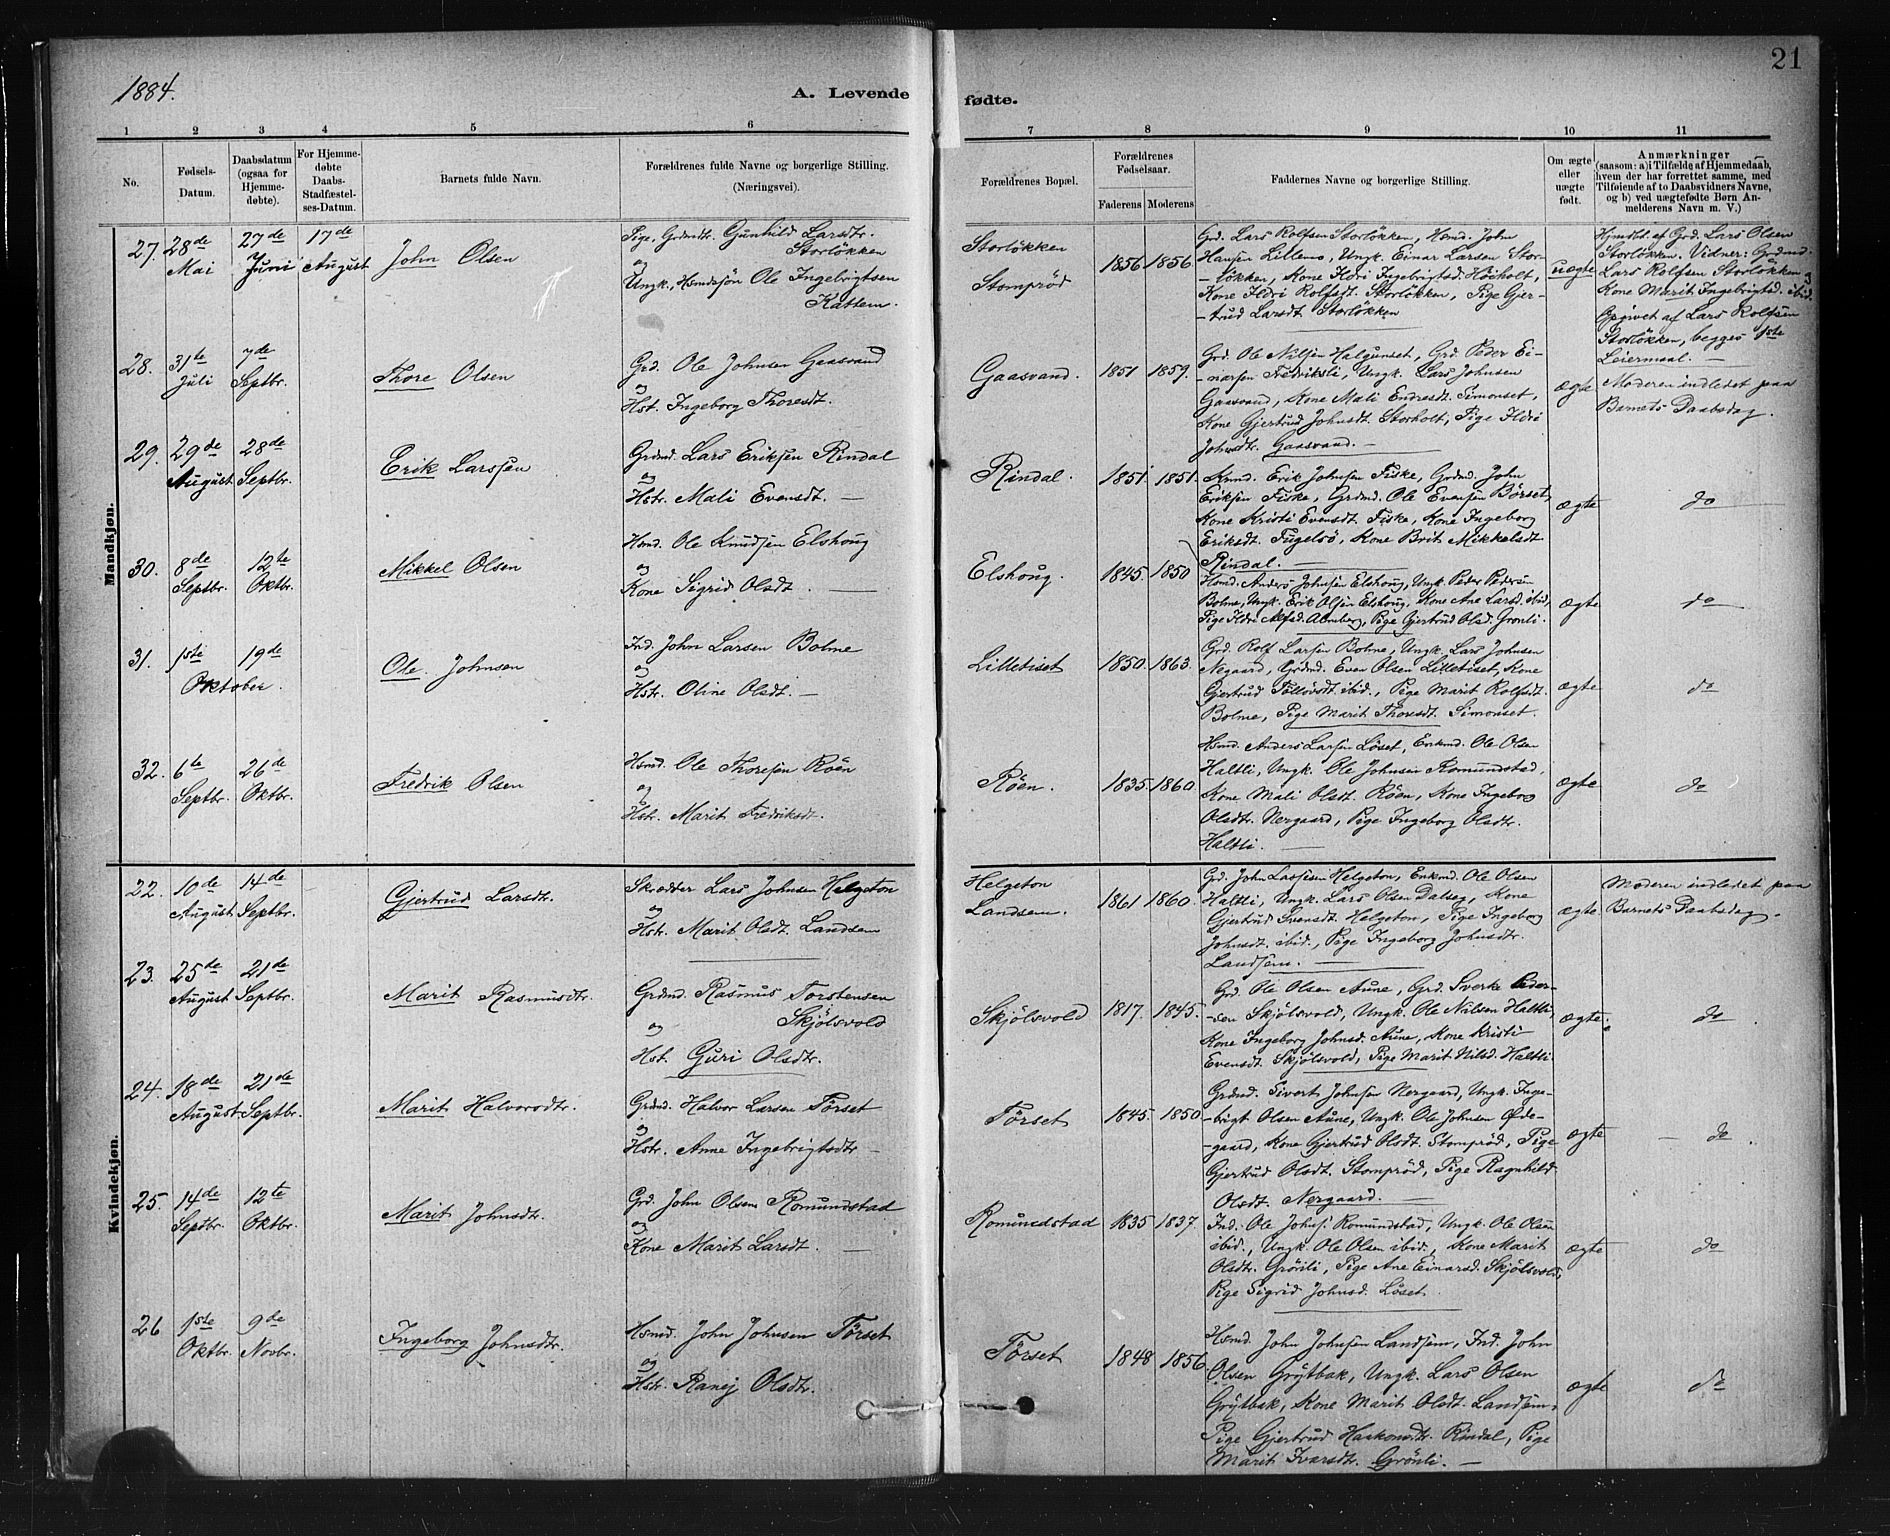 1884.
A. Levende fødte.
21
1 2 3 4 5 6 7 8 9 10 11
No.
Fødsels-
Datum.
Daabsdatum
(ogsaa for
Hjemme-
døbte).
For Hjemme-
døbte
Daabs-
Stadfæstel-
ses-Datum.
Barnets fulde Navn.
Forældrenes fulde Navne og borgerlige Stilling.
(Næringsvei).
Forældrenes Bopæl.
Forældrenes
Fødselsaar.
Faderens Moderens
Faddernes Navne og borgerlige Stilling.
Om ægte
eller
uægte
født.
Anmærkninger
(saasom: a) i Tilfælde af Hjemmedaab,
hvem der har forrettet samme, med
Tilføiende af to Daabsvidners Navne,
og b) ved uægtefødte Børn An-
melderens Navn m. V.)
Mandkjøn.
27. 28de Mai
27de Juni
17de August
John Olsen
Pige, Grdmdtr. Gunhild Larsdtr.
Storløkken
og
Ungk., Hsmdssøn Ole Ingebrigtsen
Kattem.
Storløkken
Stomprød
1856 1856.
Grd. Lars Rolfsen Storløkken, Hsmd. John
Hansen Lillemo, Ungk. Einar Larsen Stor-
-løkken, Kone Ildri Ingebrigtsd. Høiholt,
Kone Ildri Rolfsdt. Storløkken, Pige Gjer-
-trud Larsdt. Storløkken
uægte
Hjmdbt. af Grd. Lars Olsen
Storløkken. Vidner: Grdmd.
Lars Rolfsen Storløkken og
Kone Marit Ingebrigtsd. ibid.
Opgivet af Lars Rolfsen
Storløkken, begges 1ste
Leiermaal. —
28. 31te Juli
7de Septbr.
Thore Olsen
Grd. Ole Johnsen Gaasvand
og
Hst. Ingeborg Thoresdt.
Gaasvand.
1851 1859.
Grd. Ole Nilsen Halgunset, Grd. Peder Ei-
-narsen Fredriksli, Ungk. Lars Johnsen
Gaasvand, Kone Mali Endresdt. Simonset,
Kone Gjertrud Johnsdt. Storholt, Pige Ildri
Johnsdtr. Gaasvand. —
ægte
Moderen indledet paa
Barnets Daabsdag.
29. 29de August
28de Septbr.
Erik Larssen
Grdmd. Lars Eriksen Rindal
og
Hstr. Mali Evensdt. —
Rindal.
1851. 1851.
Kmd. Erik Johnsen Fiske, Grdmd. John
Eriksen Fiske, Grdmd. Ole Evensen Børset,
Kone Kristi Evensdt. Fiske, Kone Ingeborg
Eriksdt. Fugelsø, Kone Brit Mikkelsdt
Rindal. —
ægte
do
30. 8de Septbr.
12te Oktbr.
Mikkel Olsen
Hsmd. Ole Knudsen Elshoug
og
Kone Sigrid Olsdt. —
Elshoug.
1845. 1850
Hsmd. Anders Johnsen Elshoug, Ungk. Peder Pedersen
Bolme, Ungk. Erik Olsen Elshoug, Kone Ane Larsd. ibid,
Pige Ildri Almberg, Pige Gjertrud Olsd. Grønli.
ægte
do
31. 1ste Oktober.
19de
Ole Johnsen
Ind. John Larsen Bolme
og
Hstr. Oline Olsdt. —
Lilletiset
1850. 1863.
Grd. Rolf Larsen Bolme, Ungk. Lars Johnsen
Negaard, Grdmd. Even Olsen Lilletiset, Kone
Gjertrud ibid., Pige Marit Rolfsdt.
Bolme, Pige Marit Thoresdt. Simonset.
ægte
do
32. 6te Septbr.
26de Oktbr.
Fredrik Olsen
Hsmd. Ole Thoresen Røen
og
Hstr. Marit Fredriksdt.
Røen.
1835. 1860
Hsmd. Anders Larsen Løset, Enkmd. Ole Olsen
Haltli, Ungk. Ole Johnsen Romundstad,
Kone Mali Olsdt. Røen, Kone Ingeborg
Olsdtr. Nergaard, Pige Ingeborg Olsdtr.
Haltli. —
ægte
do
Kvindekjøn.
22. 10de August
14de Septbr.
Gjertrud Larsdt.
Skrædder Lars Johnsen Helgeton
og
Hstr. Marit Olsdt. Landsem
Helgeton
Landsem.
1861 1860.
Grd. John Larssen Helgeton, Enkmd. Ole Olsen
Haltli, Ungk. Lars Olsen Dalseg, Kone
Gjertrud Svensdt. Helgeton, Pige Ingeborg
Johnsdt. ibid., Pige Ingeborg Johnsdtr.
Landsem. —
ægte.
Moderen indledet paa
Barnets Daabsdag.
23. 25de August
21de Septbr.
Marit Rasmusdtr.
Grdmd. Rasmus Torstensen
Skjølsvold
og
Hst. Guri Olsdtr.
Skjølsvold
1817. 1845.
Grd. Ole Olsen Aune, Grd. Sverke Peder-
-sen Skjølsvold, Ungk. Ole Nilsen Haltli,
Kone Ingeborg Johnsd. Aune, Kone Kristi
Evensdt. Skjølsvold, Pige Marit Nilsd. Haltli.
ægte.
do
24. 18de August
21de Septbr.
Marit Halvorsdtr.
Grdmd. Halvor Larsen Tørset
og
Hstr. Anne Ingebrigtsdtr —
Tørset
1845. 1850.
Grdmd. Sivert Johnsen Nergaard, Ungk. Inge-
-brigt Olsen Aune, Ungk. Ole Johnsen Øde-
-gaard, Kone Gjertrud Olsdt. Stomprød, Pige
Gjertrud Olsdt. Stomprød, Pige Ragnhild
Olsdt. Nergaard. —
ægte
— do.
25. 14de Septbr.
12te Oktbr.
Marit Johnsdtr.
Grd. John Olsen Romundstad
og
Kone Marit Larsdt. —
Romundstad
1835 1837.
Ind. Ole Johns. Romundstad, Ungk. Ole Olsen
ibid., Ungk. Ole Olsen ibid., Kone Marit
Olsdtr. Grønli, Pige Ane Einarsd. Skjølsvold,
Pige Sigrid Johnsd. Løset
ægte
do
26 1ste Oktbr.
9de Novbr.
Ingeborg Johnsdtr.
Hsmd. John Johnsen Tørset
og
Hstr. Ranej Olsdtr.
Tørset
1848 1856.
Hsmd. John Johnsen Landsem, Ind. John
Olsen Grytbak, Ungk. Lars Olsen
Grytbak, Kone Marit Olsdt. Landsem,
Pige Gjertrud Haakonsdtr. Rindal, Pige
Marit Ivarsdtr. Grønli. —
ægte
do